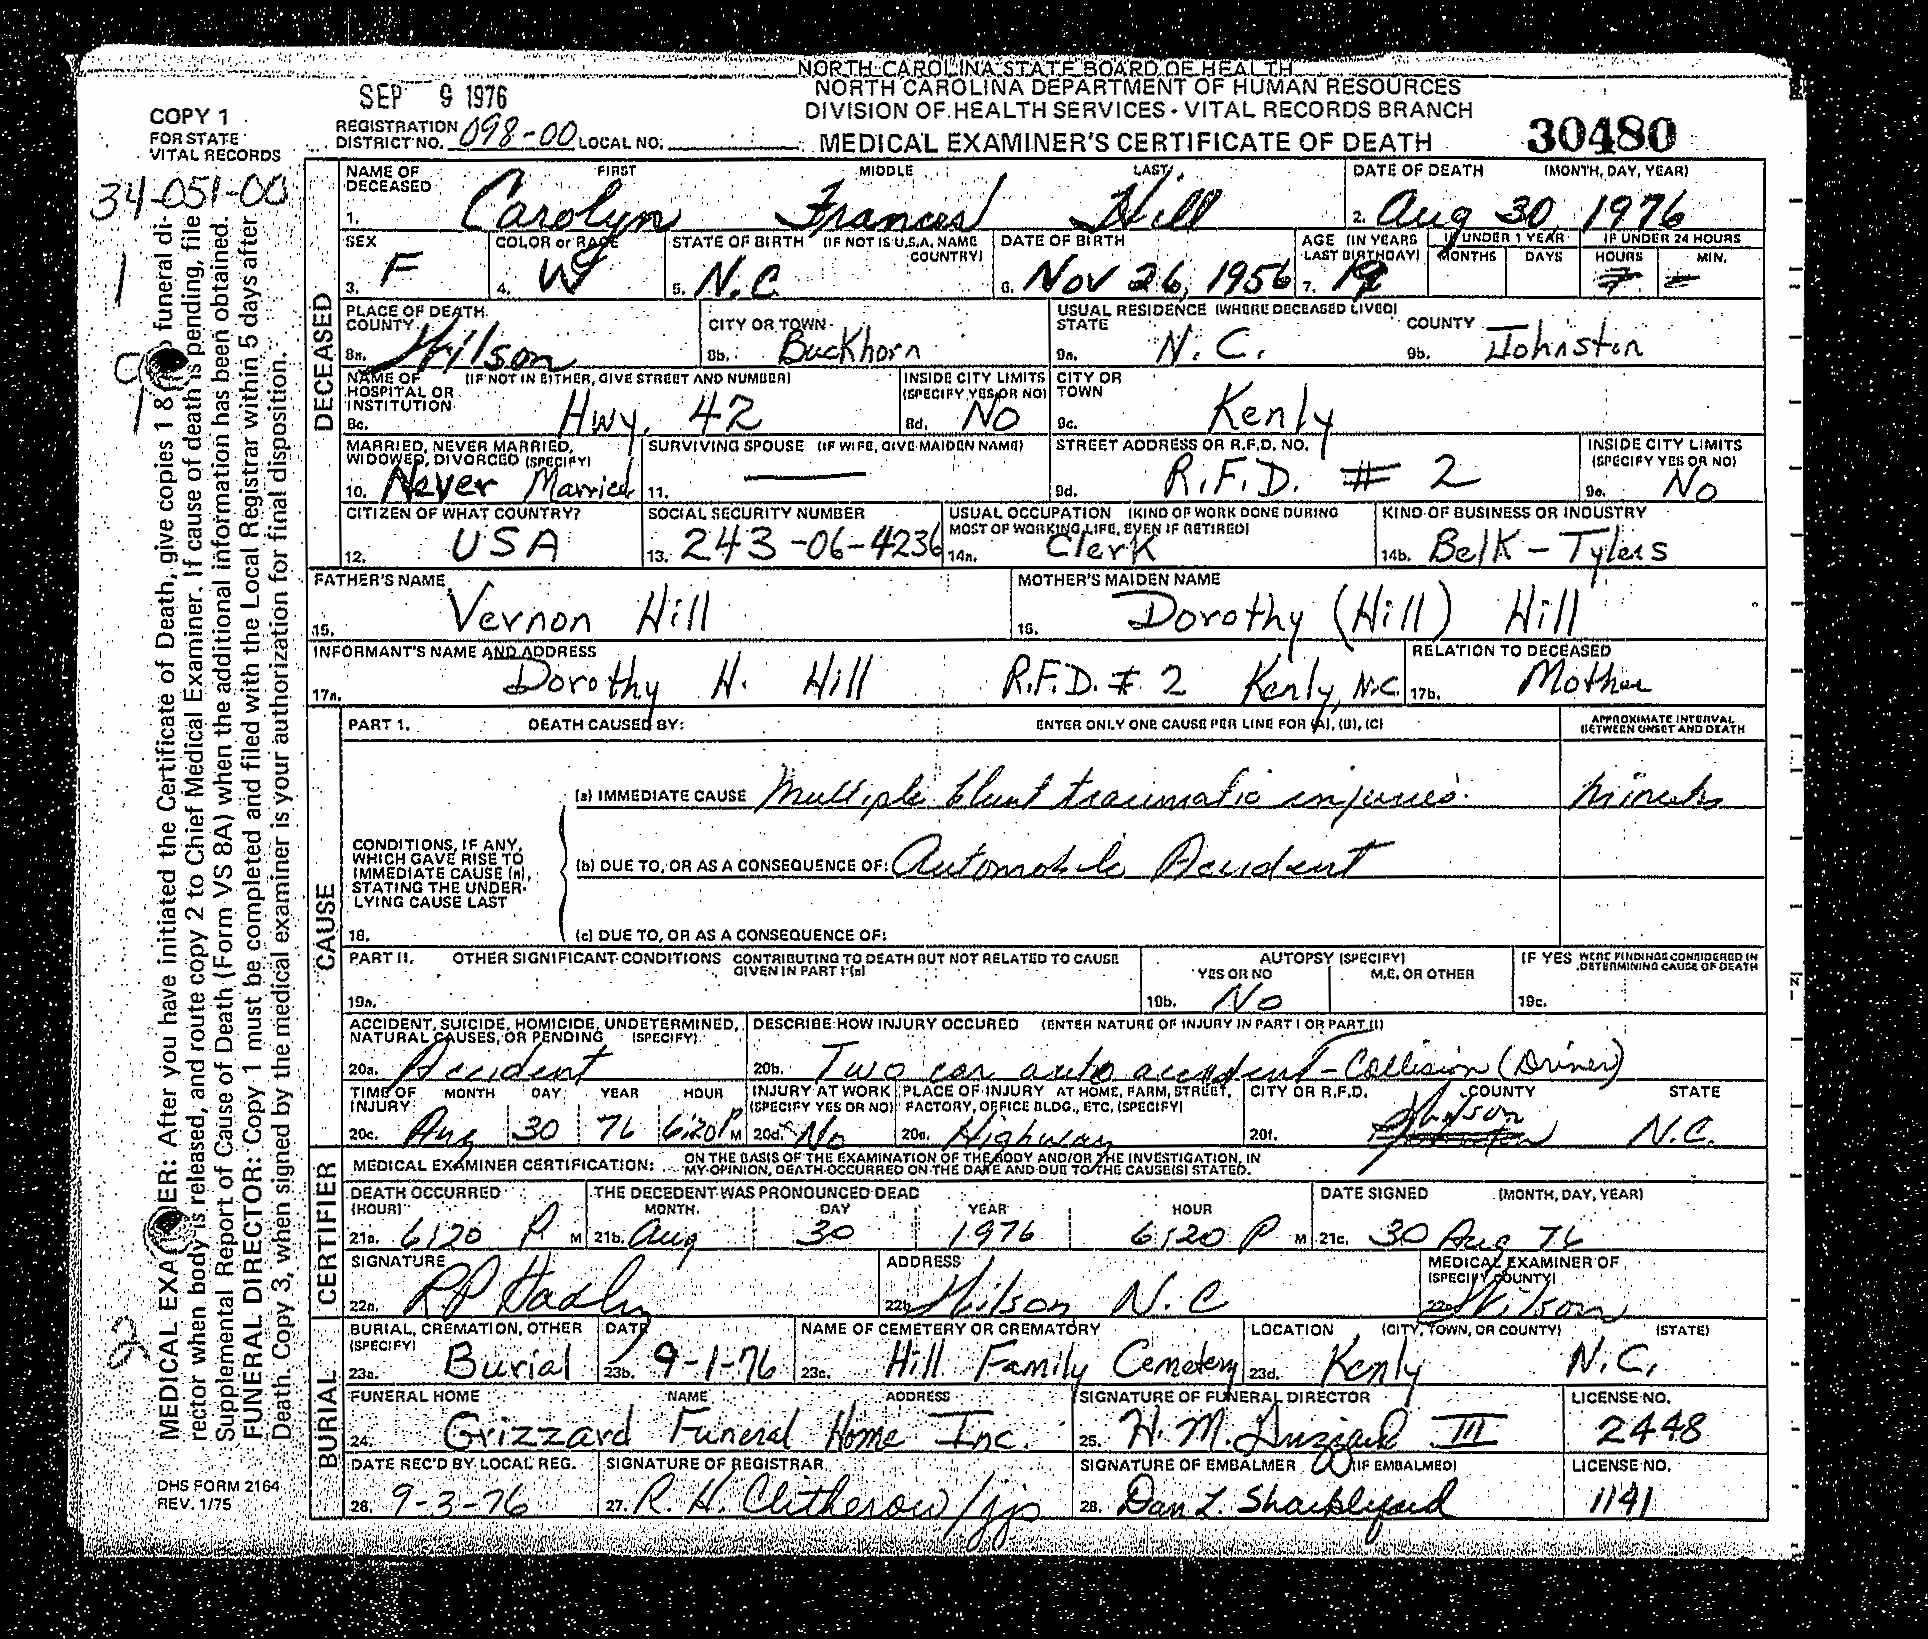 NORTH CAROLINA STATE BOARD OF HEALTH
NORTH CAROLINA DEPARTMENT OF HUMAN RESOURCES
DIVISION OF HEALTH SERVICES - VITAL RECORDS BRANCH
MEDICAL EXAMINER'S CERTIFICATE OF DEATH
30480
COPY 1
FOR STATE
VITAL RECORDS
SEP 9 1976
REGISTRATION
DISTRICT NO. 098-00 LOCAL NO.
34-051-00
1
9
1
2
MEDICAL EXA ER: After you have initiated the Certificate of Death, give copies 1 & funeral di-
rector when body is released, and route copy 2 to Chief Medical Examiner. If cause of death is pending, file
Supplemental Report of Cause of Death (Form VS 8A) when the additional information has been obtained.
FUNERAL DIRECTOR: Copy 1 must be completed and filed with the Local Registrar within 5 days after
Death. Copy 3, when signed by the medical examiner is your authorization for final disposition.
DHS FORM 2164
REV. 1/75
DECEASED
NAME OF DECEASED FIRST MIDDLE LAST
1. Carolyn Frances Hill
DATE OF DEATH (MONTH, DAY, YEAR)
2. Aug 30, 1976
SEX
3. F
COLOR or RACE
4. W
STATE OF BIRTH (IF NOT IS U.S.A. NAME COUNTRY)
5. N.C.
DATE OF BIRTH
6. Nov 26, 1956
AGE (IN YEARS LAST BIRTHDAY)
7. 19
IF UNDER 1 YEAR
MONTHS DAYS
IF UNDER 24 HOURS
HOURS MIN.
PLACE OF DEATH
COUNTY
8a. Wilson
CITY OR TOWN
8b. Buckhorn
USUAL RESIDENCE (WHERE DECEASED LIVED)
STATE
9a. N.C.
COUNTY
9b. Johnston
NAME OF HOSPITAL OR INSTITUTION (IF NOT IN EITHER, GIVE STREET AND NUMBER)
8c. Hwy. 42
INSIDE CITY LIMITS (SPECIFY YES OR NO)
8d. No
CITY OR TOWN
9c. Kenly
MARRIED, NEVER MARRIED, WIDOWED, DIVORCED (SPECIFY)
10. Never Married
SURVIVING SPOUSE (IF WIFE, GIVE MAIDEN NAME)
11. —
STREET ADDRESS OR R.F.D. NO.
9d. R.F.D. # 2
INSIDE CITY LIMITS (SPECIFY YES OR NO)
9e. No
CITIZEN OF WHAT COUNTRY?
12. USA
SOCIAL SECURITY NUMBER
13. 243-06-4236
USUAL OCCUPATION (KIND OF WORK DONE DURING MOST OF WORKING LIFE, EVEN IF RETIRED)
14a. Clerk
KIND OF BUSINESS OR INDUSTRY
14b. Belk-Tylers
FATHER'S NAME
15. Vernon Hill
MOTHER'S MAIDEN NAME
16. Dorothy (Hill) Hill
INFORMANT'S NAME AND ADDRESS
17a. Dorothy H. Hill R.F.D. # 2 Kenly, N.C.
RELATION TO DECEASED
17b. Mother
CAUSE
PART 1. DEATH CAUSED BY: ENTER ONLY ONE CAUSE PER LINE FOR (A), (B), (C)
APPROXIMATE INTERVAL BETWEEN ONSET AND DEATH
(a) IMMEDIATE CAUSE Multiple blunt traumatic injuries. minutes
CONDITIONS, IF ANY, WHICH GAVE RISE TO IMMEDIATE CAUSE (a), STATING THE UNDER-LYING CAUSE LAST
(b) DUE TO, OR AS A CONSEQUENCE OF: Automobile Accident
18. (c) DUE TO, OR AS A CONSEQUENCE OF:
PART II. OTHER SIGNIFICANT CONDITIONS CONTRIBUTING TO DEATH BUT NOT RELATED TO CAUSE GIVEN IN PART 1 (a)
19a.
AUTOPSY (SPECIFY)
YES OR NO M.E. OR OTHER
19b. No
IF YES WERE FINDINGS CONSIDERED IN DETERMINING CAUSE OF DEATH
19c.
ACCIDENT, SUICIDE, HOMICIDE, UNDETERMINED, NATURAL CAUSES, OR PENDING (SPECIFY)
20a. Accident
DESCRIBE HOW INJURY OCCURED (ENTER NATURE OF INJURY IN PART I OR PART II)
20b. Two car auto accident - Collision (Driver)
TIME OF INJURY MONTH DAY YEAR HOUR
20c. Aug 30 76 6:20 P M
INJURY AT WORK (SPECIFY YES OR NO)
20d. No
PLACE OF INJURY AT HOME, FARM, STREET, FACTORY, OFFICE BLDG., ETC. (SPECIFY)
20e. Highway
CITY OR R.F.D. COUNTY STATE
20f. Wilson N.C.
CERTIFIER
MEDICAL EXAMINER CERTIFICATION: ON THE BASIS OF THE EXAMINATION OF THE BODY AND/OR THE INVESTIGATION, IN MY OPINION, DEATH OCCURRED ON THE DATE AND DUE TO THE CAUSE(S) STATED.
DEATH OCCURRED (HOUR)
21a. 6:20 P M
THE DECEDENT WAS PRONOUNCED DEAD
MONTH DAY YEAR HOUR
21b. Aug 30 1976 6:20 P M
DATE SIGNED (MONTH, DAY, YEAR)
21c. 30 Aug 76
SIGNATURE
22a. RP Hadley
ADDRESS
22b. Wilson N.C
MEDICAL EXAMINER OF (SPECIFY COUNTY)
22c. Wilson
BURIAL
BURIAL, CREMATION, OTHER (SPECIFY)
23a. Burial
DATE
23b. 9-1-76
NAME OF CEMETERY OR CREMATORY
23c. Hill Family Cemetery
LOCATION (CITY, TOWN, OR COUNTY) (STATE)
23d. Kenly N.C.
FUNERAL HOME NAME ADDRESS
24. Grizzard Funeral Home Inc.
SIGNATURE OF FUNERAL DIRECTOR
25. H. M. Grizzard III
LICENSE NO.
2448
DATE REC'D BY LOCAL REG.
26. 9-3-76
SIGNATURE OF REGISTRAR
27. R. H. Clitherow/jjp
SIGNATURE OF EMBALMER (IF EMBALMED)
28. Dan L. Shackleford
LICENSE NO.
1141